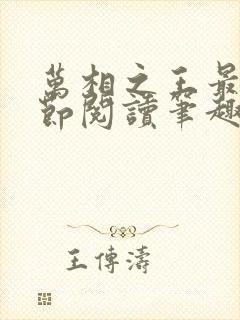 萬相之王最
節閱讀筆趣
王傳濤